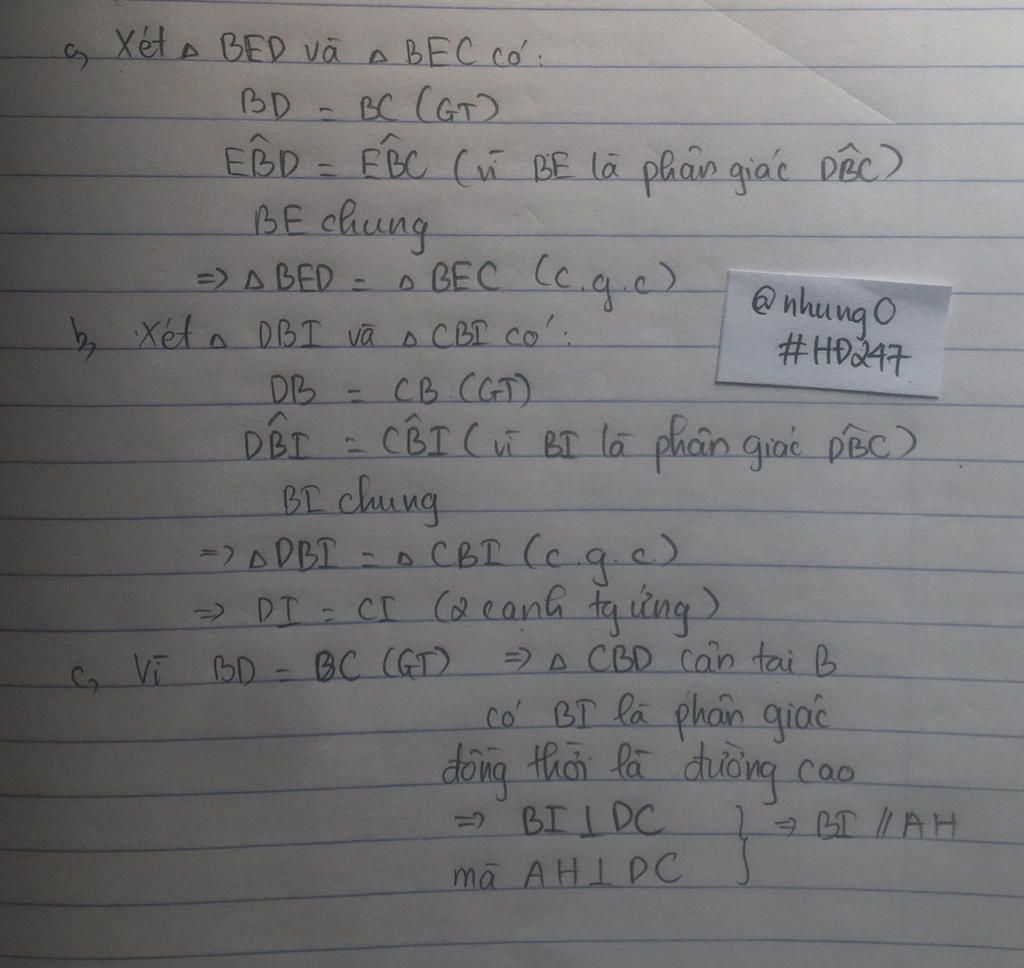 a, Xét Δ BED và Δ BEC có:
BD = BC (GT)
EB̂D = EB̂C (vì BE là phân giác DB̂C)
BE chung
=> Δ BED = Δ BEC (c.g.c)
@nhung0
#HĐ247
b, Xét Δ DBI và Δ CBI có:
DB = CB (GT)
DB̂I = CB̂I (vì BI là phân giác DB̂C)
BI chung
=> Δ DBI = Δ CBI (c.g.c)
=> DI = CI (2 cạnh tg ứng)
c, Vì BD = BC (GT) => Δ CBD cân tại B
có BI là phân giác
đồng thời là đường cao
=> BI ⊥ DC } => BI // AH
mà AH ⊥ DC